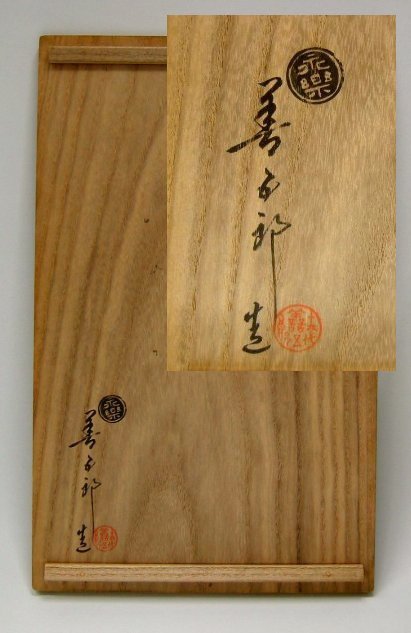 永樂
善五郎
造
永樂
善五郎
造